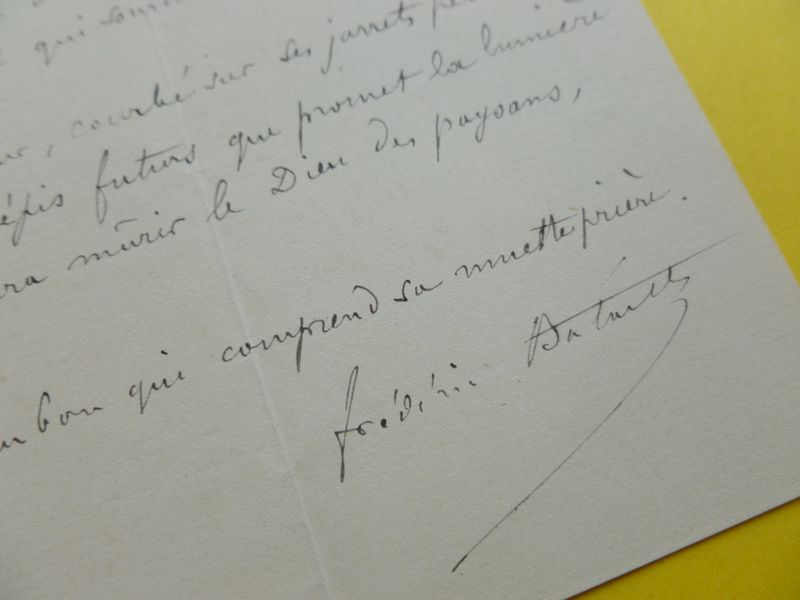 qui
courbé sur ses jarrets
épis futurs que promet la lumière
mûrir le Dieu des paysans,
bon qui comprend sa muette prière.
Frédéric Bataille